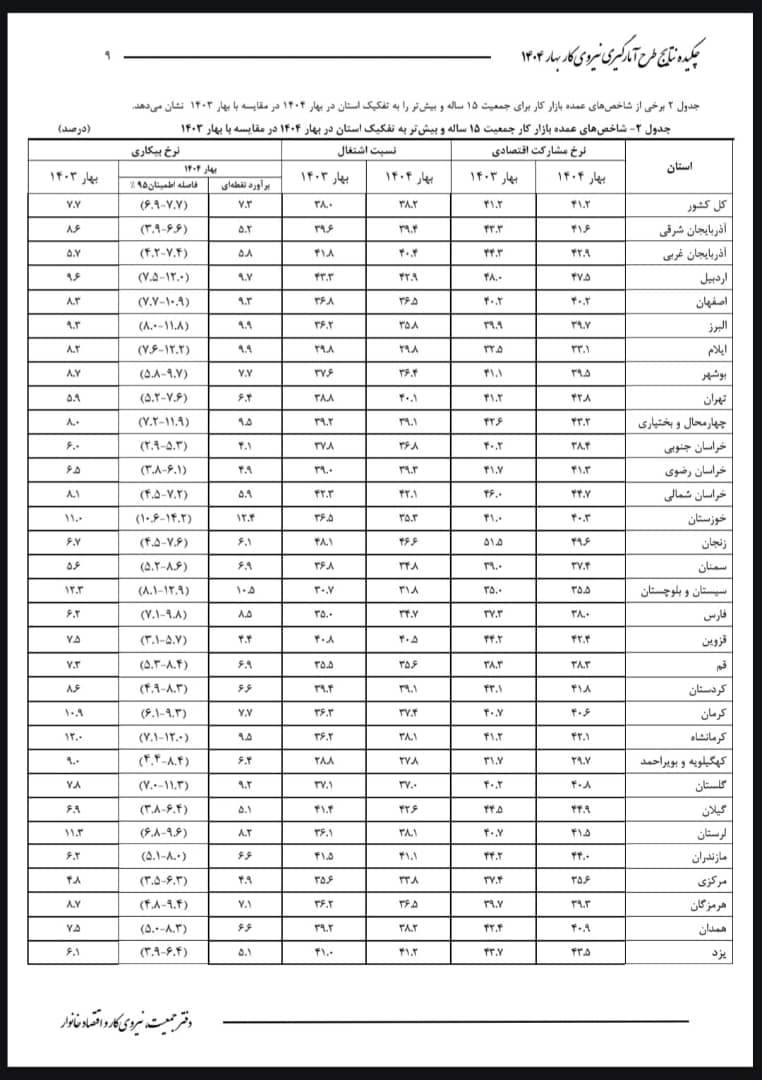 چکیده نتایج طرح آمارگیری نیروی کار بهار ۱۴۰۴ ۹
جدول ۲ برخی از شاخص‌های عمده بازار کار برای جمعیت ۱۵ ساله و بیش‌تر را به تفکیک استان در بهار ۱۴۰۴ در مقایسه با بهار ۱۴۰۳ نشان می‌دهد.
جدول ۲- شاخص‌های عمده بازار کار جمعیت ۱۵ ساله و بیش‌تر به تفکیک استان در بهار ۱۴۰۴ در مقایسه با بهار ۱۴۰۳ (درصد)
استان نرخ مشارکت اقتصادی نسبت اشتغال نرخ بیکاری
بهار ۱۴۰۴ بهار ۱۴۰۳ بهار ۱۴۰۴ بهار ۱۴۰۳ بهار ۱۴۰۴ بهار ۱۴۰۳
برآورد نقطه‌ای فاصله اطمینان۹۵ ٪
کل کشور ۴۱.۲ ۴۱.۲ ۳۸.۲ ۳۸.۰ ۷.۳ (۶.۹-۷.۷) ۷.۷
آذربایجان شرقی ۴۱.۶ ۴۳.۳ ۳۹.۴ ۳۹.۶ ۵.۲ (۳.۹-۶.۶) ۸.۶
آذربایجان غربی ۴۲.۹ ۴۴.۳ ۴۰.۴ ۴۱.۸ ۵.۸ (۴.۲-۷.۴) ۵.۷
اردبیل ۴۷.۵ ۴۸.۰ ۴۲.۹ ۴۳.۳ ۹.۷ (۷.۵-۱۲.۰) ۹.۶
اصفهان ۴۰.۲ ۴۰.۲ ۳۶.۵ ۳۶.۸ ۹.۳ (۷.۷-۱۰.۹) ۸.۳
البرز ۳۹.۷ ۳۹.۹ ۳۵.۸ ۳۶.۲ ۹.۹ (۸.۰-۱۱.۸) ۹.۳
ایلام ۳۳.۱ ۳۲.۵ ۲۹.۸ ۲۹.۸ ۹.۹ (۷.۶-۱۲.۲) ۸.۲
بوشهر ۳۹.۵ ۴۱.۱ ۳۶.۴ ۳۷.۶ ۷.۷ (۵.۸-۹.۷) ۸.۷
تهران ۴۲.۸ ۴۱.۲ ۴۰.۱ ۳۸.۸ ۶.۴ (۵.۲-۷.۶) ۵.۹
چهارمحال و بختیاری ۴۳.۲ ۴۲.۶ ۳۹.۱ ۳۹.۲ ۹.۵ (۷.۲-۱۱.۹) ۸.۰
خراسان جنوبی ۳۸.۴ ۴۰.۲ ۳۶.۸ ۳۷.۸ ۴.۱ (۲.۹-۵.۳) ۶.۰
خراسان رضوی ۴۱.۳ ۴۱.۷ ۳۹.۳ ۳۹.۰ ۴.۹ (۳.۸-۶.۱) ۶.۵
خراسان شمالی ۴۴.۷ ۴۶.۰ ۴۲.۱ ۴۲.۳ ۵.۹ (۴.۵-۷.۲) ۸.۱
خوزستان ۴۰.۳ ۴۱.۰ ۳۵.۳ ۳۶.۵ ۱۲.۴ (۱۰.۶-۱۴.۲) ۱۱.۰
زنجان ۴۹.۶ ۵۱.۵ ۴۶.۶ ۴۸.۱ ۶.۱ (۴.۵-۷.۶) ۶.۷
سمنان ۳۷.۴ ۳۹.۰ ۳۴.۸ ۳۶.۸ ۶.۹ (۵.۲-۸.۶) ۵.۶
سیستان و بلوچستان ۳۵.۵ ۳۵.۰ ۳۱.۸ ۳۰.۷ ۱۰.۵ (۸.۱-۱۲.۹) ۱۲.۳
فارس ۳۸.۰ ۳۷.۳ ۳۴.۷ ۳۵.۰ ۸.۵ (۷.۱-۹.۸) ۶.۲
قزوین ۴۲.۴ ۴۴.۲ ۴۰.۵ ۴۰.۸ ۴.۴ (۳.۱-۵.۷) ۷.۵
قم ۳۸.۳ ۳۸.۳ ۳۵.۶ ۳۵.۵ ۶.۹ (۵.۳-۸.۴) ۷.۳
کردستان ۴۱.۸ ۴۳.۱ ۳۹.۱ ۳۹.۴ ۶.۶ (۴.۹-۸.۳) ۸.۶
کرمان ۴۰.۶ ۴۰.۷ ۳۷.۴ ۳۶.۳ ۷.۷ (۶.۱-۹.۳) ۱۰.۹
کرمانشاه ۴۲.۱ ۴۱.۲ ۳۸.۱ ۳۶.۲ ۹.۵ (۷.۱-۱۲.۰) ۱۲.۰
کهگیلویه و بویراحمد ۲۹.۷ ۳۱.۷ ۲۷.۸ ۲۸.۸ ۶.۴ (۴.۴-۸.۴) ۹.۰
گلستان ۴۰.۸ ۴۰.۲ ۳۷.۰ ۳۷.۱ ۹.۲ (۷.۰-۱۱.۳) ۷.۸
گیلان ۴۴.۹ ۴۴.۵ ۴۲.۶ ۴۱.۴ ۵.۱ (۳.۸-۶.۴) ۶.۹
لرستان ۴۱.۵ ۴۰.۷ ۳۸.۱ ۳۶.۱ ۸.۲ (۶.۸-۹.۶) ۱۱.۳
مازندران ۴۴.۰ ۴۴.۲ ۴۱.۱ ۴۱.۵ ۶.۶ (۵.۱-۸.۰) ۶.۲
مرکزی ۳۵.۶ ۳۷.۴ ۳۳.۸ ۳۵.۶ ۴.۹ (۳.۵-۶.۳) ۴.۸
هرمزگان ۳۹.۳ ۳۹.۷ ۳۶.۵ ۳۶.۲ ۷.۱ (۴.۸-۹.۴) ۸.۷
همدان ۴۰.۹ ۴۲.۴ ۳۸.۲ ۳۹.۲ ۶.۶ (۵.۰-۸.۳) ۷.۵
یزد ۴۳.۵ ۴۳.۷ ۴۱.۲ ۴۱.۰ ۵.۱ (۳.۹-۶.۴) ۶.۱
دفتر جمعیت، نیروی کار و اقتصاد خانوار